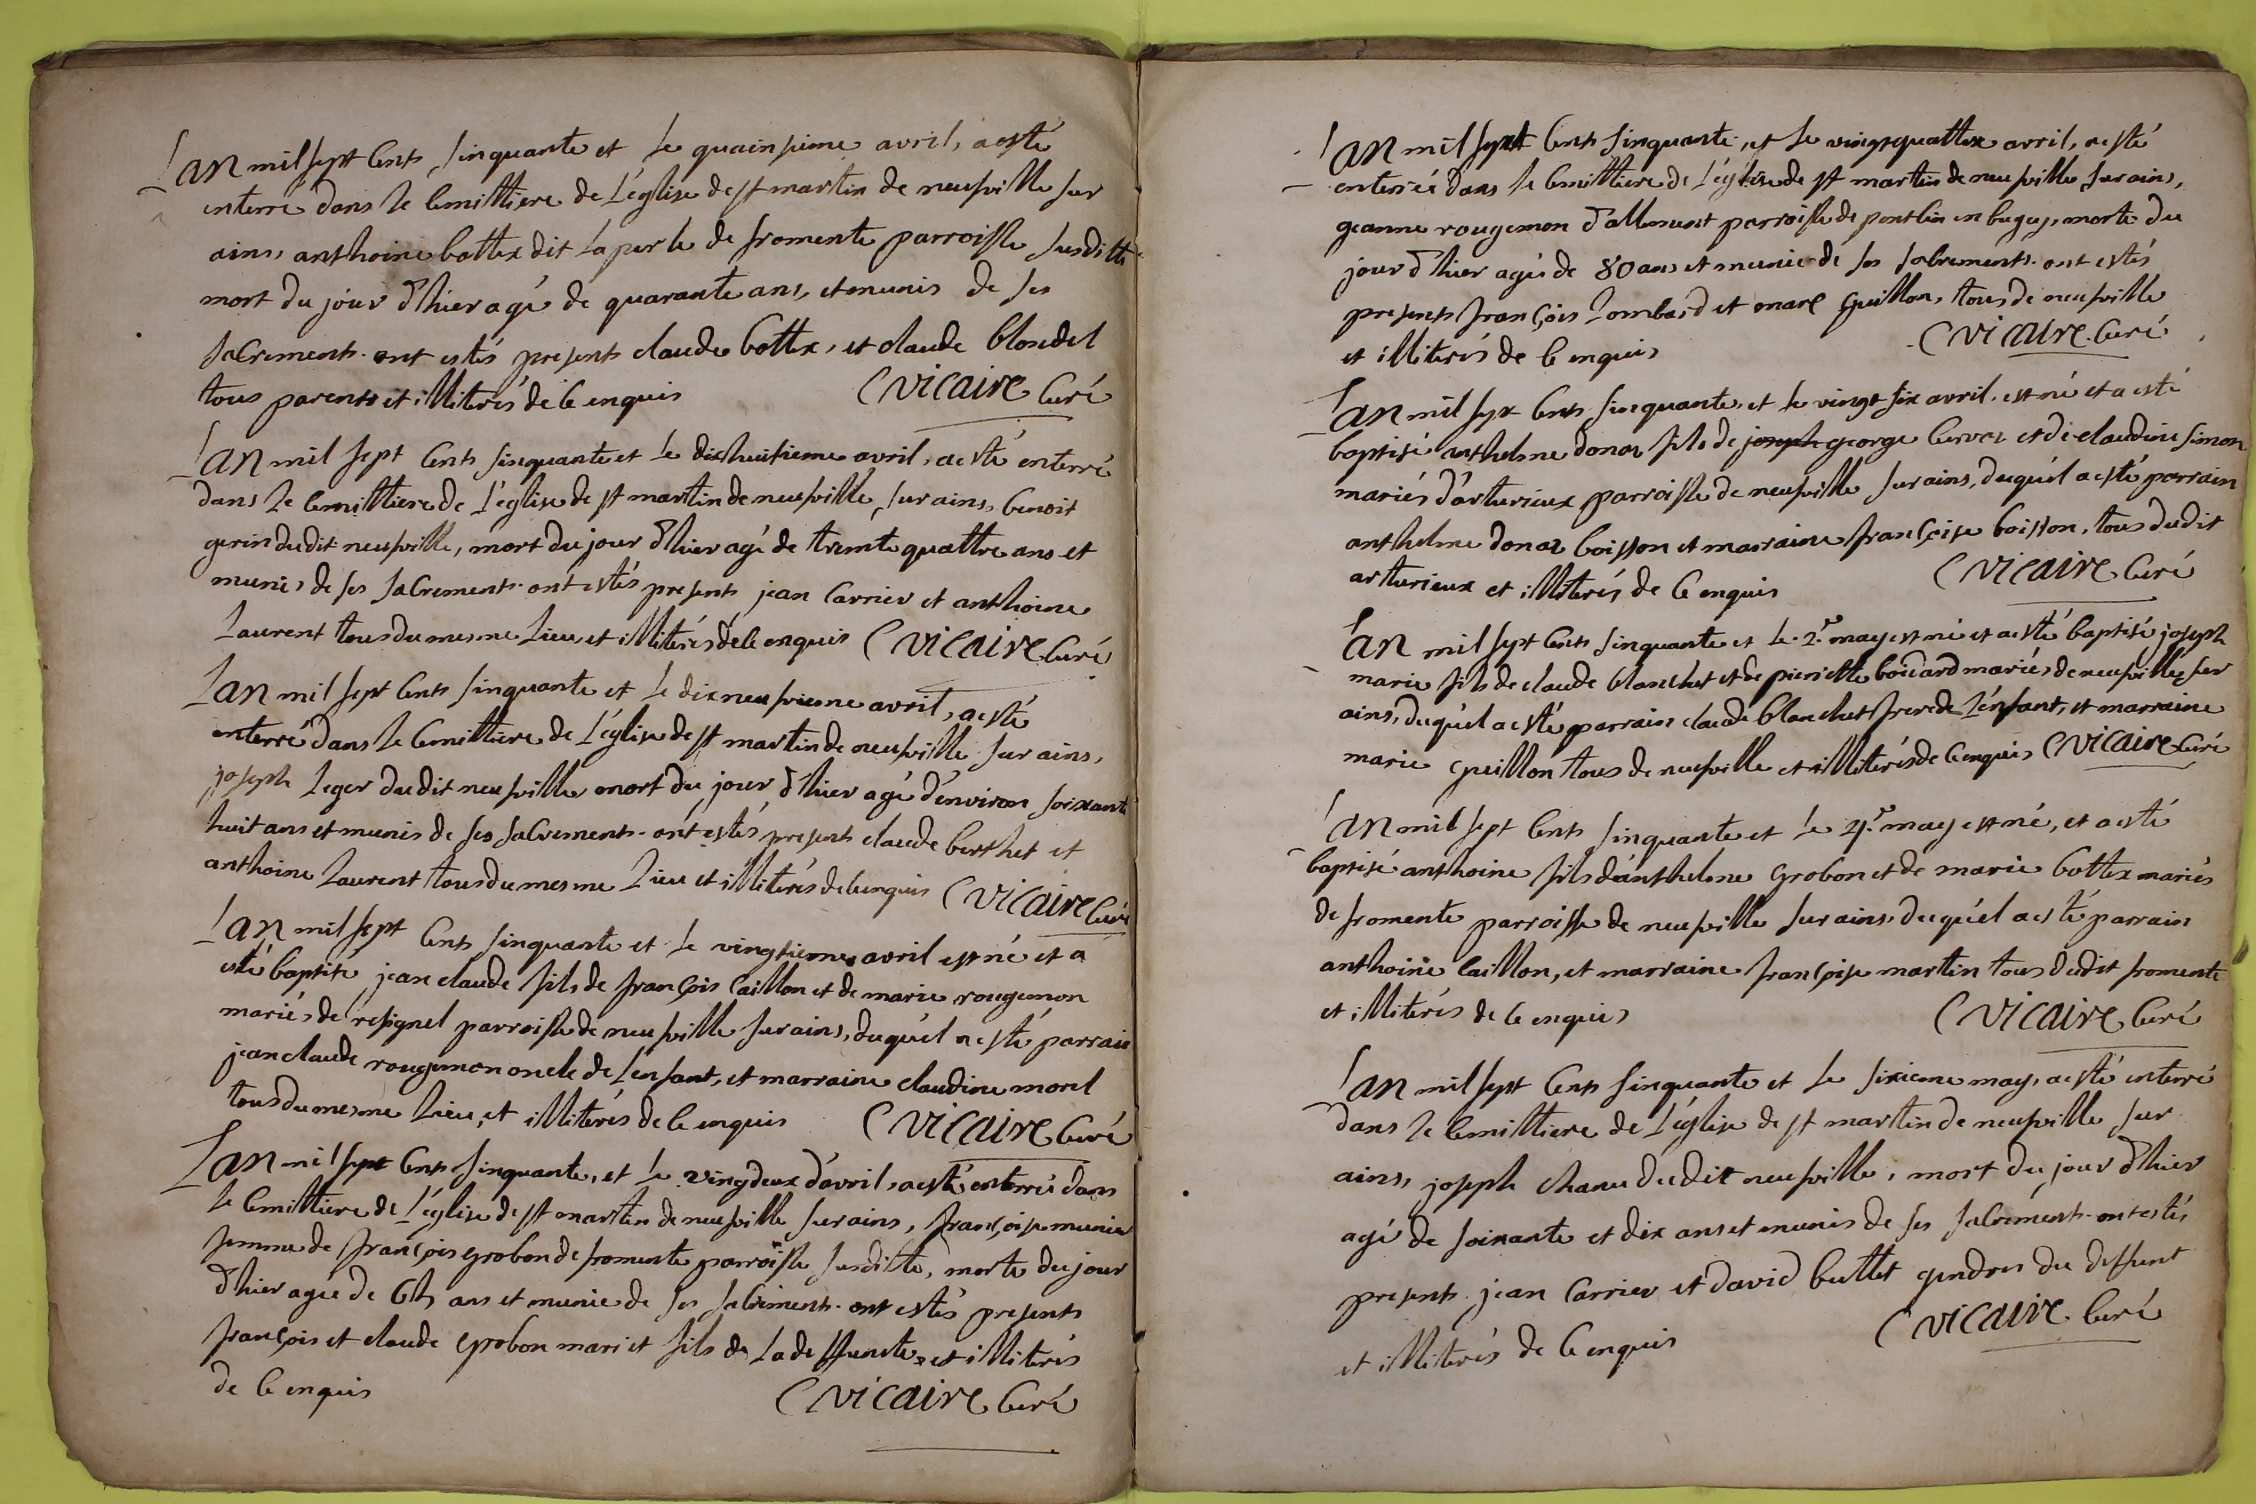 Lan mil sept cents sinquante et le quainsieme avril, a esté
enterré dans le cemittiere de l'église de st martin de neufville sur
ains, anthoine bottex dit la perle de fromente parroisse susditte
mort du jour d'hier agé de quarante ans, et munis de ses
sacrements. ont estés presents claude bottex, et claude blondel
tous parents et illiterés de ce enquis C vicaire Curé
Lan mil sept cents sinquante et le dixhuitieme avril, a esté enterré
dans le cemittiere de l'église de st martin de neufville sur ains, benoit
gerin dudit neufville, mort du jour d'hier agé de trente quattre ans et
munis de ses sacrements. ont estés presents jean carrier et anthoine
laurent tous du mesme lieu, et illiterés de ce enquis C vicaire Curé
Lan mil sept cents sinquante et le dix neufvieme avril, a esté
enterré dans le cemittiere de l'église de st martin de neufville sur ains,
joseph leger dudit neufville mort du jour d'hier agé d'environ soixante
huit ans et munis de ses sacrements. ont estés presents claude berthet et
anthoine laurent tous du mesme lieu et illiterés de ce enquis C vicaire Curé
Lan mil sept cents sinquante et le vingtieme avril est né et a
esté baptisé jean claude fils de françois caillon et de marie rougemon
mariés de resignel parroisse de neufville sur ains, duquél a esté parrain
jean claude rougemon oncle de l'enfant, et marraine claudine morel
tous du mesme lieu, et illiterés de ce enquis C vicaire Curé
Lan mil sept cents sinquante, et le vingdeux d'avril, a esté enterré dans
le cemittiere de l'église de st martin de neufville sur ains, françoise munier
femme de françois grobon de fromente parroisse susditte, morte du jour
d'hier agée de ans et munie de ses sacrements. ont estés presents
françois et claude grobon mari et fils de la deffuncte, et illiterés
de ce enquis C vicaire Curé
Lan mil sept cents sinquante, et le vingtquattre avril, a esté
enterrée dans le cemittiere de l'église de st martin de neufville sur ains,
jeanne rougemon d'allement parroisse de pontsin en bugey, morte du
jour d'hier agée de 80 ans et munie de ses sacrements. ont estés
presents françois lombard et marc guillon, tous de neufville
et illiterés de ce enquis C vicaire Curé
Lan mil sept cents sinquante, et le vingt six avril. est né et a esté
baptisé anthelme donat fils de joseph george cervoz et de claudine simon
mariés d'arturieux parroisse de neufville sur ains, duquél a esté parrain
anthelme donat boisson et marraine françoise boisson, tous dudit
arturieux et illiterés de ce enquis C vicaire Curé
Lan mil sept cents sinquante et le 2.e may est né et a esté baptisé joseph
marie fils de claude blanchet et de pierrette boicard mariés de neufville sur
ains, duquél a esté parrain claude blanchet frere de l'énfant, et marraine
marie guillon tous de neufville et illiterés de ce enquis C vicaire Curé
Lan mil sept cents sinquante et le 4.e may est né, et a esté
baptisé anthoine fils d'anthelme grobon et de marie bottex mariés
de fromente parroisse de neufville sur ains, duquél a esté parrain
anthoine caillon, et marraine françoise martin tous dudit fromente
et illiterés de ce enquis C vicaire Curé
Lan mil sept cents sinquante et le sixieme may, a esté enterré
dans le cemittiere de l'église de st martin de neufville sur
ains, joseph chanu dudit neufville, mort du jour d'hier
agé de soixante et dix ans et munis de ses sacréments. ont estés
presents jean carrier et david buttet gendres du deffunt
et illiterés de ce enquis C vicaire Curé